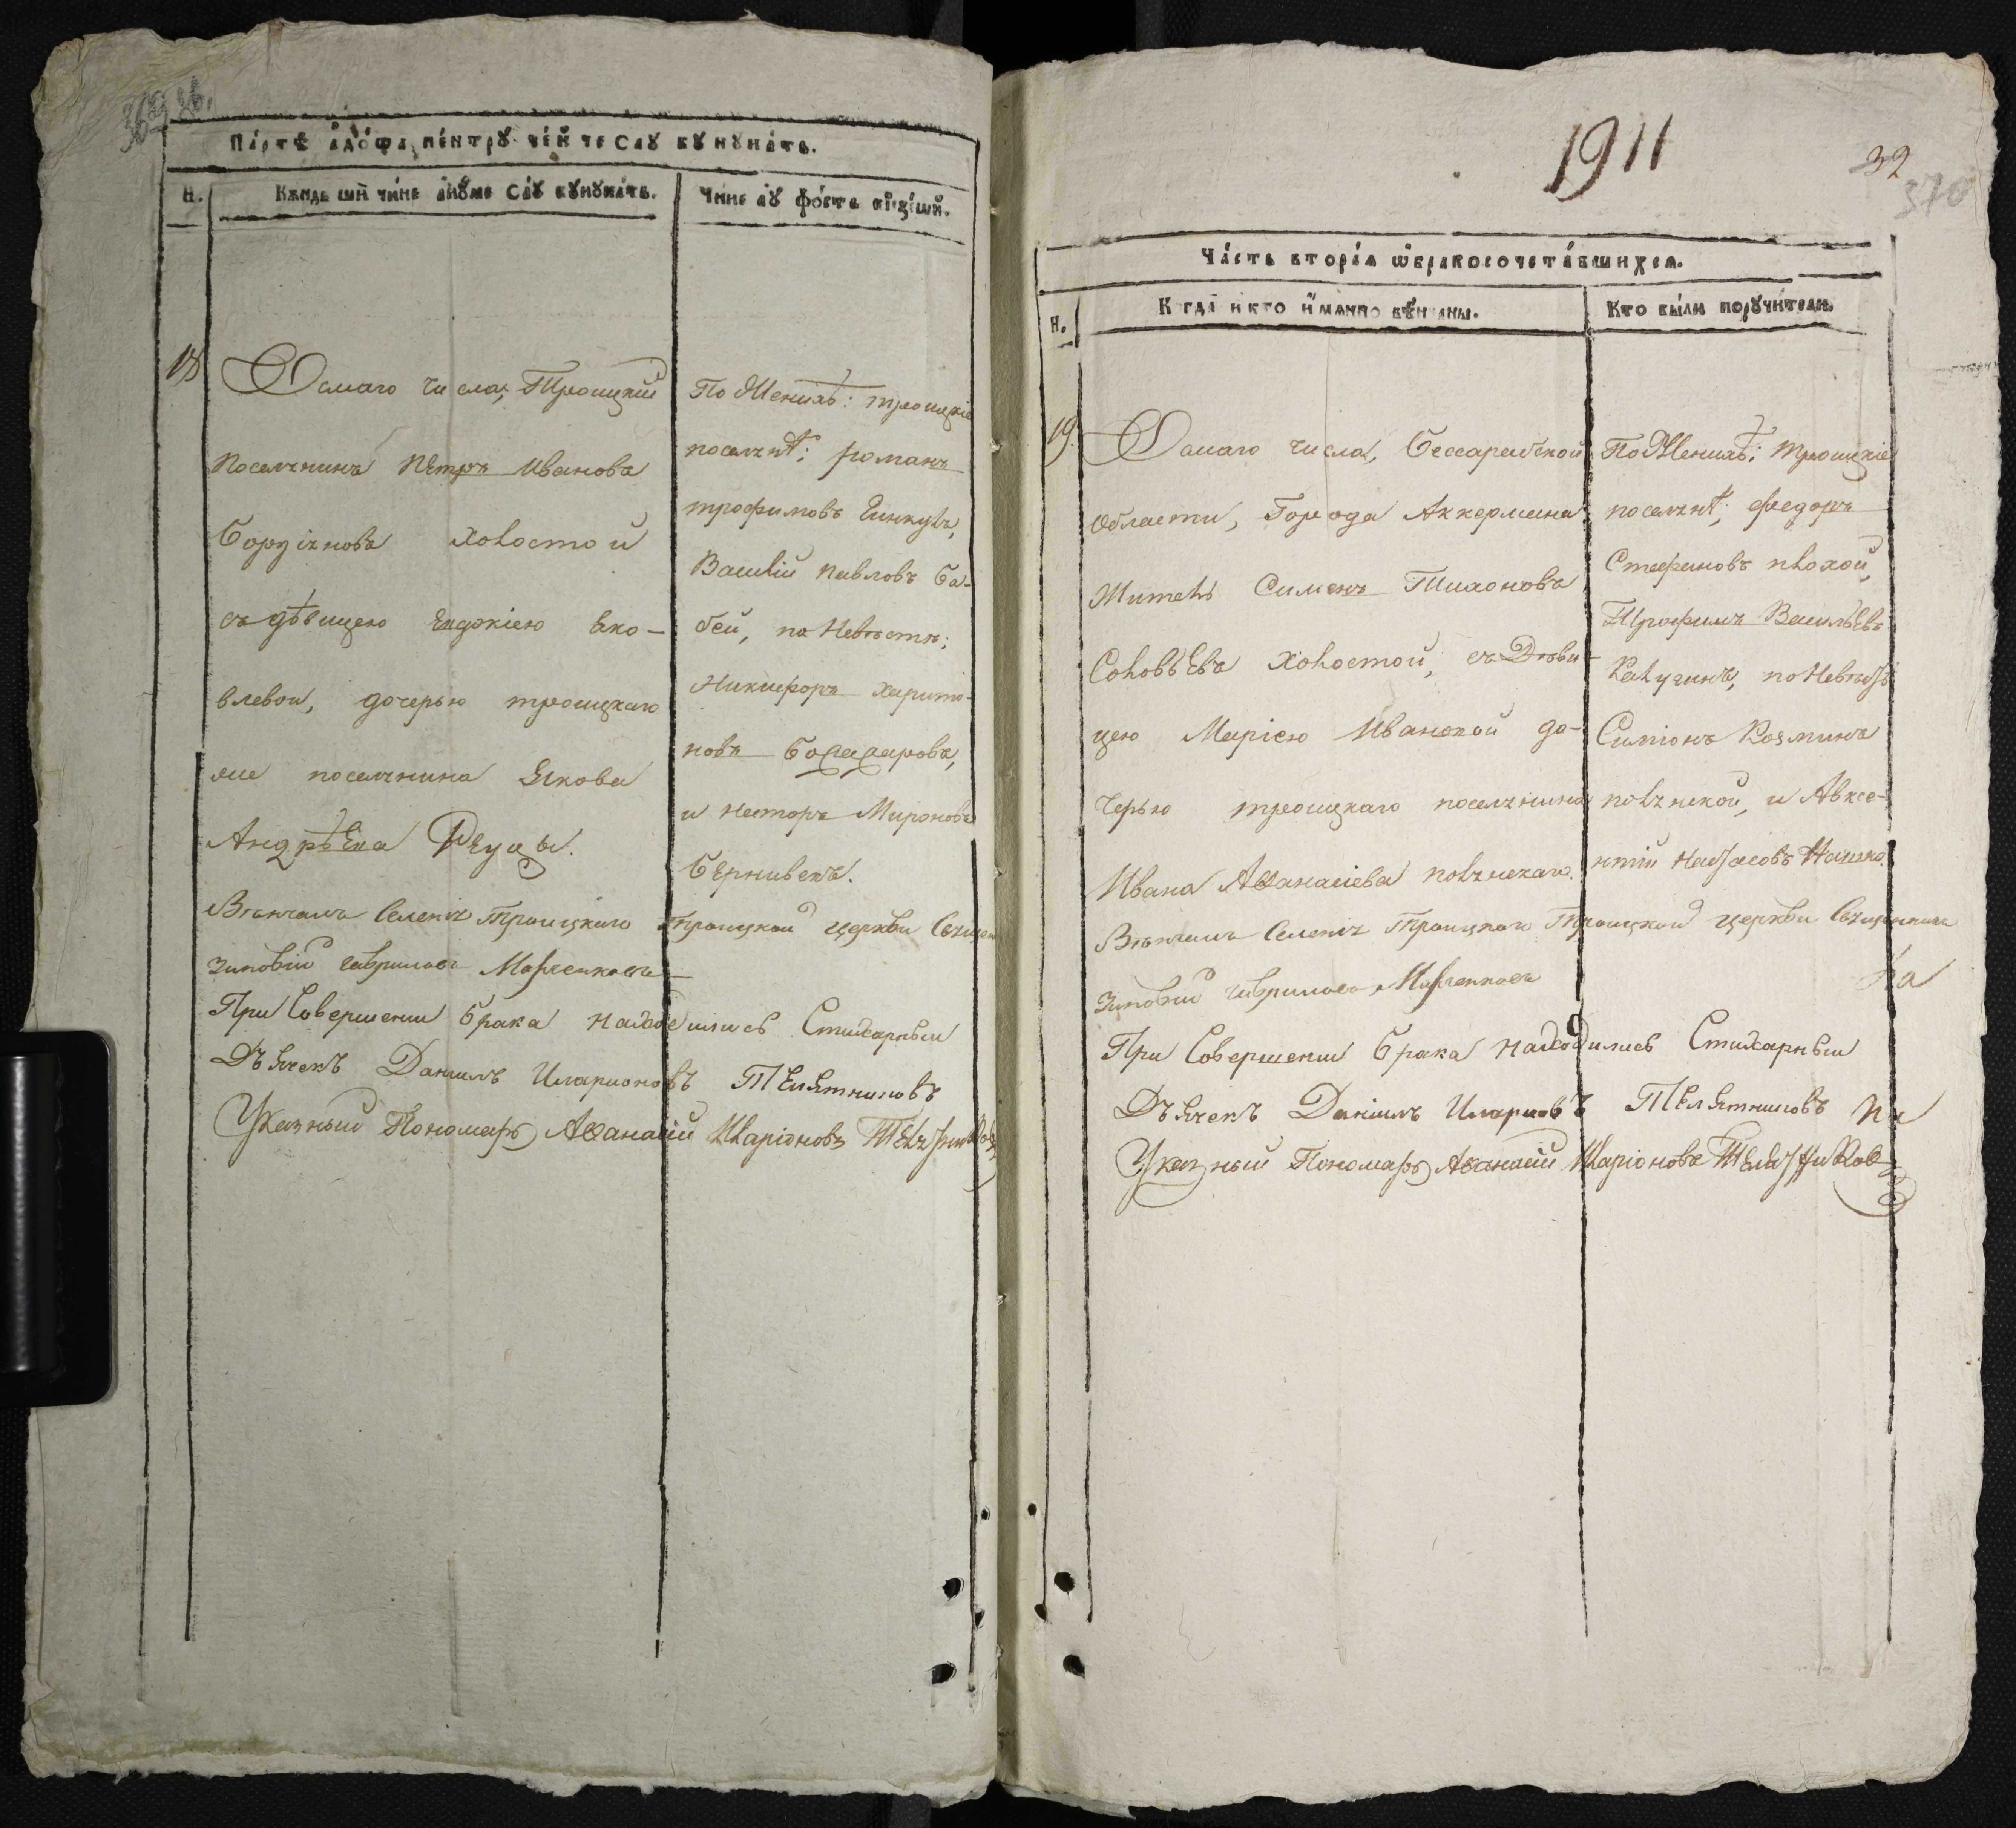 369 об.
Па́ртѣ адо́ѡа, пе́нтрꙋ че́й че сꙋ кꙋнꙋна́тъ.
Н.
Къ́ндъ ший чи́не а́нꙋме са́ꙋ кꙋнꙋна́тъ.
Чи́не аꙋ фо́стъ кїꙁе́шй.
18
Осмаго числа, Троицкій
поселянинъ Петръ Ивановъ
холостой
съ дѣвицею Евдокіею Яко-
влевои, дочерью троицкаго
же поселянина Якова
Андрѣева Реуцы.
По Женихѣ: троицкіе
поселянѣ; романъ
трофимовъ
Василій Павловъ Ба-
бей, по Невѣстѣ:
Никифоръ Харито-
новъ
и Несторъ Мироновъ
Вѣнчалъ Селенія Троицкаго Троицкой церкви Священ
Зиновій Гавриловъ
При Совершеніи брака находились Стихарный
Дьячекъ Даніилъ Иларионовъ Телятниковъ
Указный Пономарь Аѳанасій Иларіоновъ Телятниковъ
1911
32
370
Ча́сть втора́ѧ ѡ҆бракосочета́вшихсѧ.
Н.
Когда̀ и кто̀ и҆́мѧнно вѣ́нчаны.
Кто̀ бы́ли порꙋчи́тели.
19.
Осмаго числа, Бессарабской
области, Города Аккермана
Житель Симеонъ Тихоновъ
Соловьевъ Холостой, съ Дѣви-
цею Маріею Ивановой до-
черью троицкаго поселянина
Ивана Аѳанасіева полянскаго.
По Женихѣ: троицкіе
поселянѣ; федоръ
Стефановъ плохой,
Трофимъ Васильевъ
Калугинъ, по Невѣстѣ
Симіонъ Козминъ
полянской, и Авксе-
нтій
Вѣнчалъ Селенія Троицкаго Троицкой церкви Священникъ
Зиновій Гавриловъ
При Совершеніи брака находились Стихарный
Дьячекъ Даніилъ Телятниковъ
Указный Пономарь Аѳанасій Иларіоновъ Телятниковъ